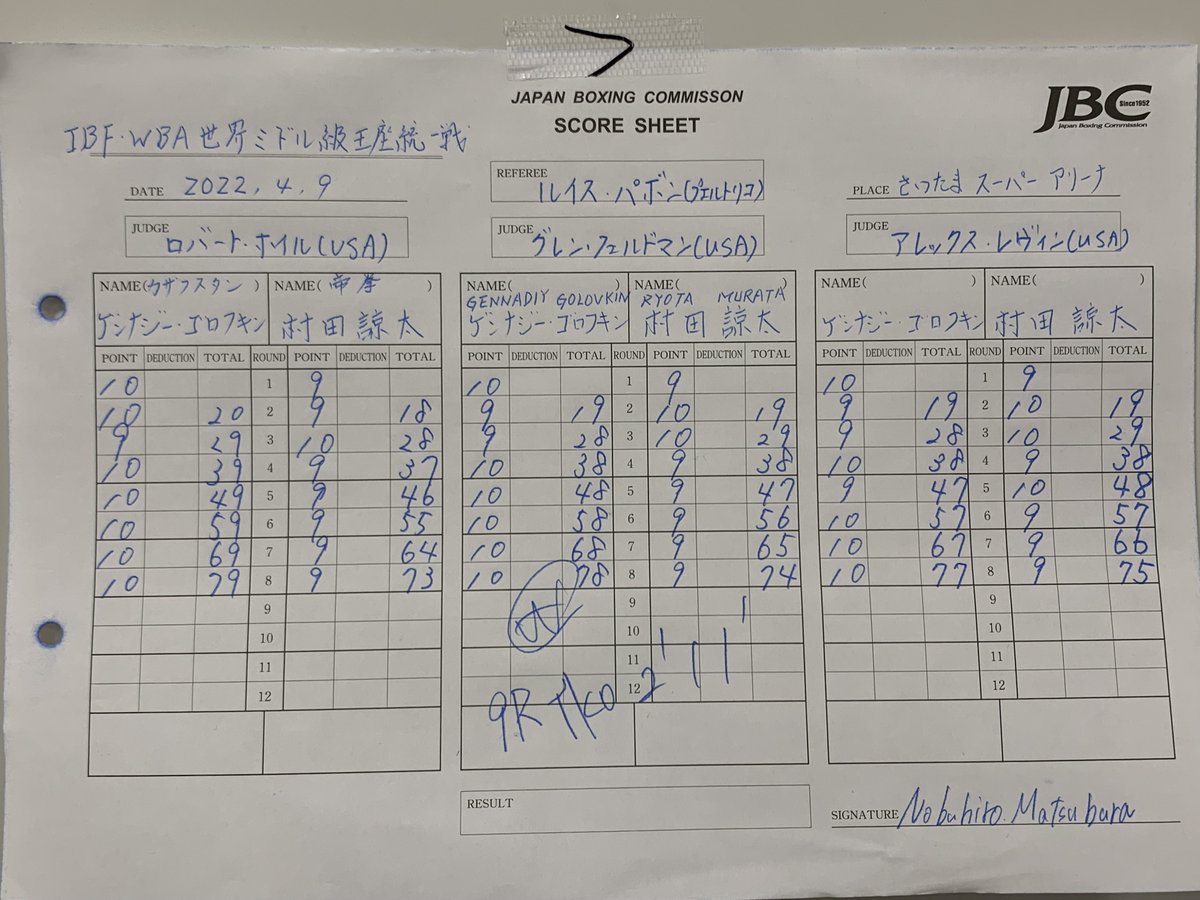 JAPAN BOXING COMMISSON
SCORE SHEET
JBC Since1952
Japan Boxing Commission
IBF・WBA世界ミドル級王座統一戦
DATE 2022.4.9
REFEREE ルイス・パボン(プエルトリコ)
PLACE さいたま スーパー アリーナ
JUDGE ロバート・ホイル(USA)
NAME(カザフスタン) NAME(帝拳)
ゲンナジー・ゴロフキン 村田 諒太
POINT DEDUCTION TOTAL ROUND POINT DEDUCTION TOTAL
10 1 9
10 20 2 9 18
9 29 3 10 28
10 39 4 9 37
10 49 5 9 46
10 59 6 9 55
10 69 7 9 64
10 79 8 9 73
9
10
11
12
JUDGE グレン・フェルドマン(USA)
NAME( NAME( )
GENNADIY GOLOVKIN RYOTA MURATA
ゲンナジー・ゴロフキン 村田 諒太
POINT DEDUCTION TOTAL ROUND POINT DEDUCTION TOTAL
10 1 9
9 19 2 10 19
9 28 3 10 29
10 38 4 9 38
10 48 5 9 47
10 58 6 9 56
10 68 7 9 65
10 78 8 9 74
9
10
11
12
9R TKO 2'11"
JUDGE アレックス・レヴィン(USA)
NAME( ) NAME( )
ゲンナジー・ゴロフキン 村田 諒太
POINT DEDUCTION TOTAL ROUND POINT DEDUCTION TOTAL
10 1 9
9 19 2 10 19
9 28 3 10 29
10 38 4 9 38
9 47 5 10 48
10 57 6 9 57
10 67 7 9 66
10 77 8 9 75
9
10
11
12
RESULT
SIGNATURE Nobuhiro.Matsubara